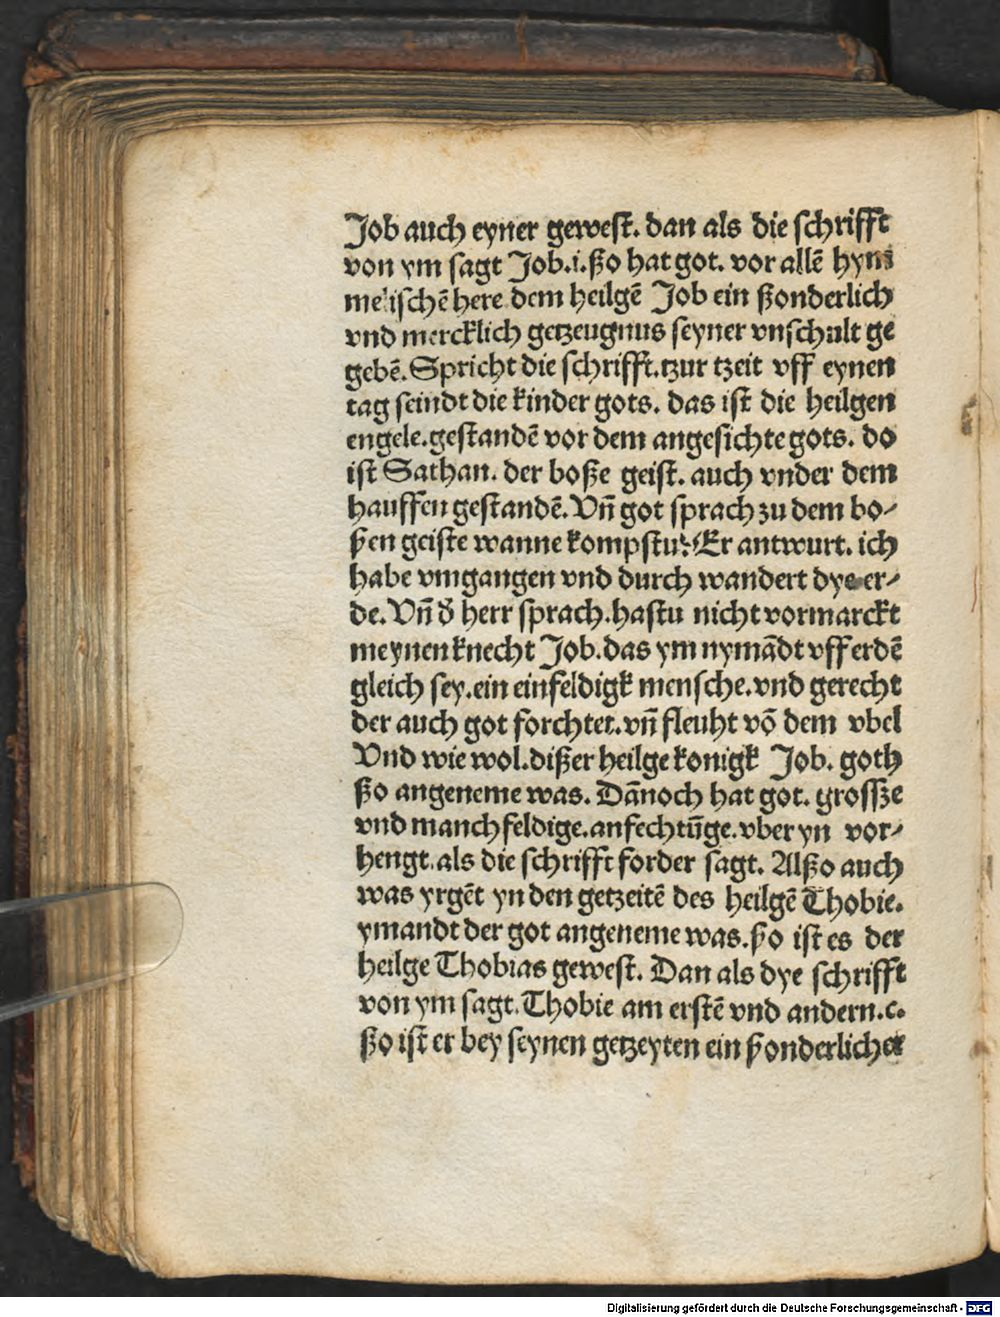 Job auch eyner gewest. dan als die schrifft
von ym sagt Job.i.ßo hat got. vor allē hym
melischē here dem heilgē Job ein ßonderlich
vnd mercklich getzeugnus seyner vnschult ge
gebē. Spricht die schrifft.tzur tzeit vff eynen
tag seindt die kinder gots. das ist die heilgen
engele.gestandē vor dem angesichte gots. do
ist Sathan. der boße geist. auch vnder dem
hauffen gestandē. Vñ got sprach zu dem bo-
ßen geiste wanne kompstu? Er antwurt. ich
habe vmgangen vnd durch wandert dye er-
de. Vñ d̄ herr sprach.hastu nicht vormarckt
meynen knecht Job.das ym nymādt vff erdē
gleich sey.ein einfeldigk mensche.vnd gerecht
der auch got forchtet.vñ fleuht vō dem vbel
Vnd wie wol.dißer heilge konigk Job. goth
ßo angeneme was. Dānoch hat got. grossze
vnd manchfeldige.anfechtūge.vber yn vor-
hengt.als die schrifft forder sagt. Alßo auch
was yrgēt yn den getzeitē des heilgē Thobie.
ymandt der got angeneme was.ßo ist es der
heilge Thobias gewest. Dan als dye schrifft
von ym sagt.Thobie am erstē vnd andern.c.
ßo ist er bey seynen getzeyten ein ßonderlicher
Digitalisierung gefördert durch die Deutsche Forschungsgemeinschaft - DFG